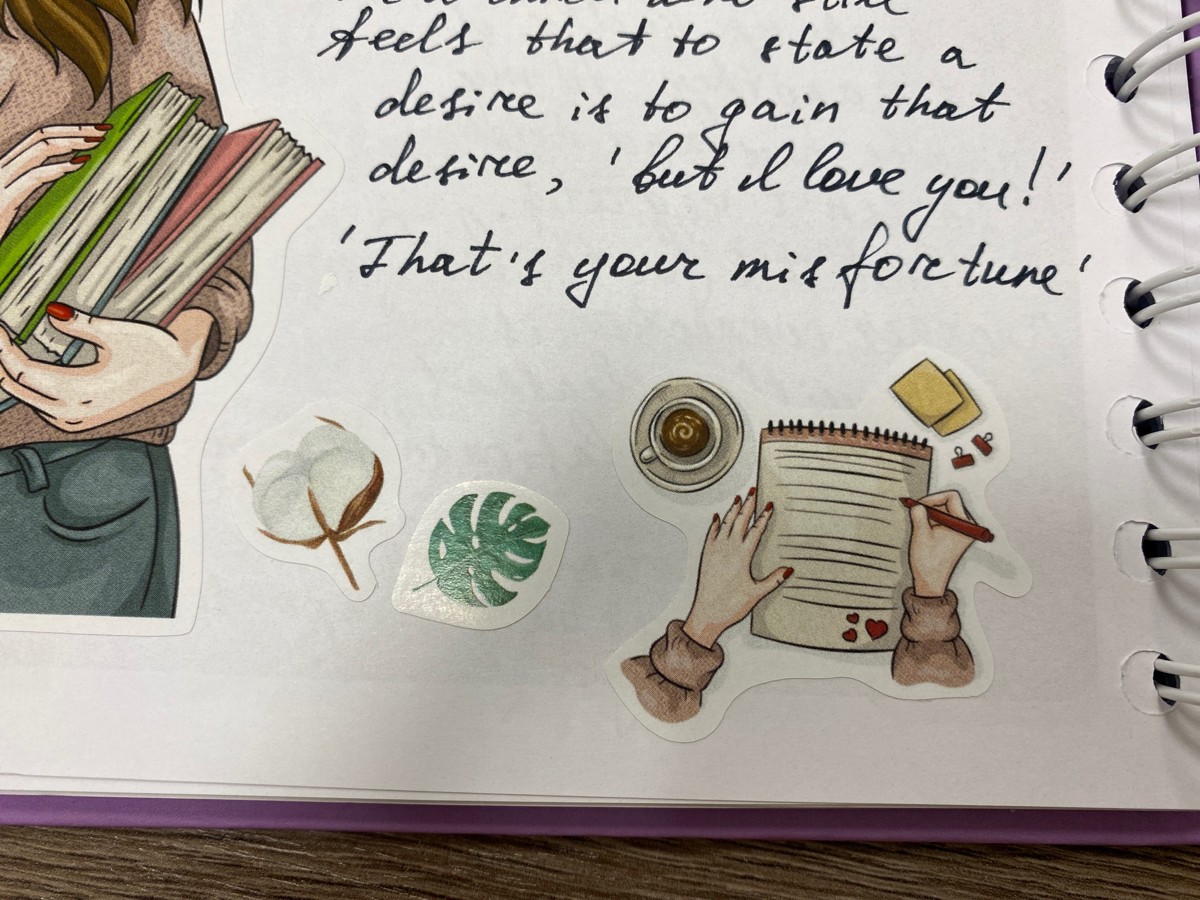 feels that to state a
desire is to gain that
desire, 'but I love you!'
'That's your misfortune'